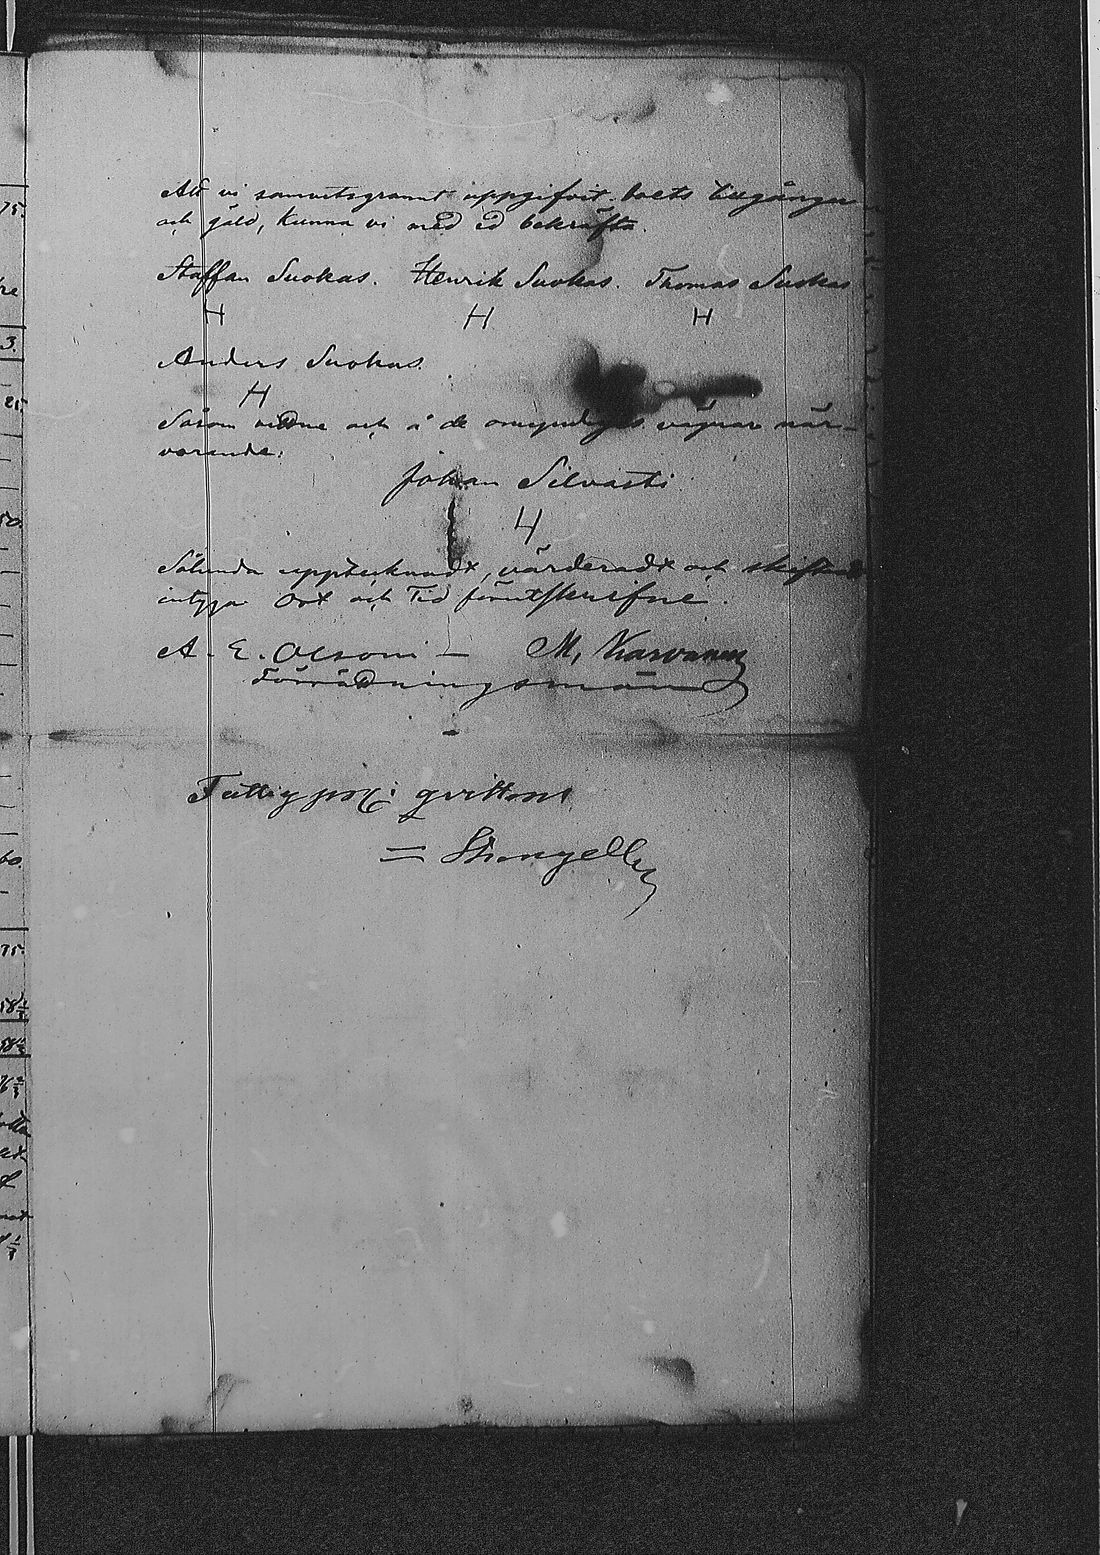 Att vi samvetsgrannt uppgifvit boets tillgångar
och gäld, kunna vi med ed bekräfta.
Staffan Suokas. Henrik Suokas. Thomas Suokas
H H H
Anders Suokas.
H
Såsom vittne och å de omyndiges vägnar när-
varande:
Johan Silvasti
H
Sålunda upptecknadt, värderadt och skiftadt
intyga Ort och Tid förutskrifne.
A. E. Olsoni — M. Karvanen
Värderingsmän
Fattig pro:c qvitteras
= Strengell
75.
3.
25
50
60.
75.